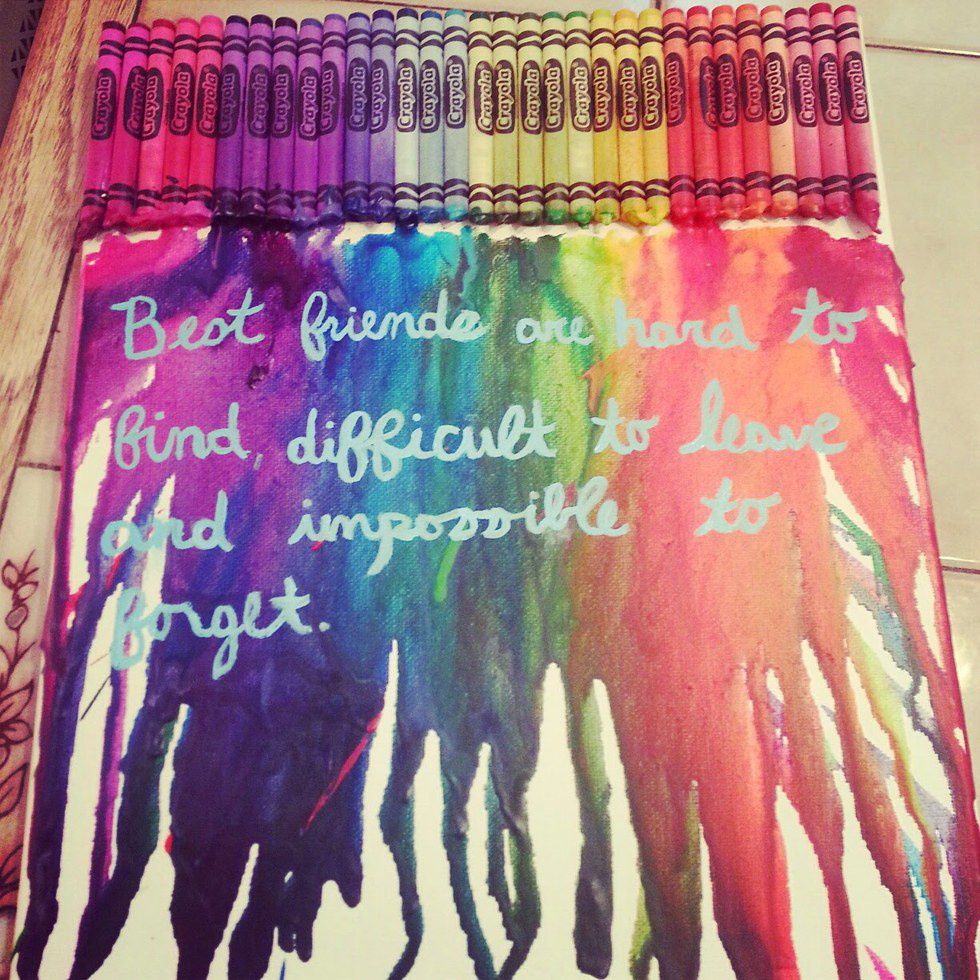 Crayola Crayola Crayola Crayola Crayola Crayola Crayola Crayola Crayola Crayola Crayola Crayola Crayola Crayola Crayola Crayola Crayola Crayola Crayola Crayola Crayola Crayola Crayola Crayola Crayola Crayola Crayola Crayola Crayola Crayola Crayola Crayola
Best friends are hard to
find, difficult to leave
and impossible to
forget.